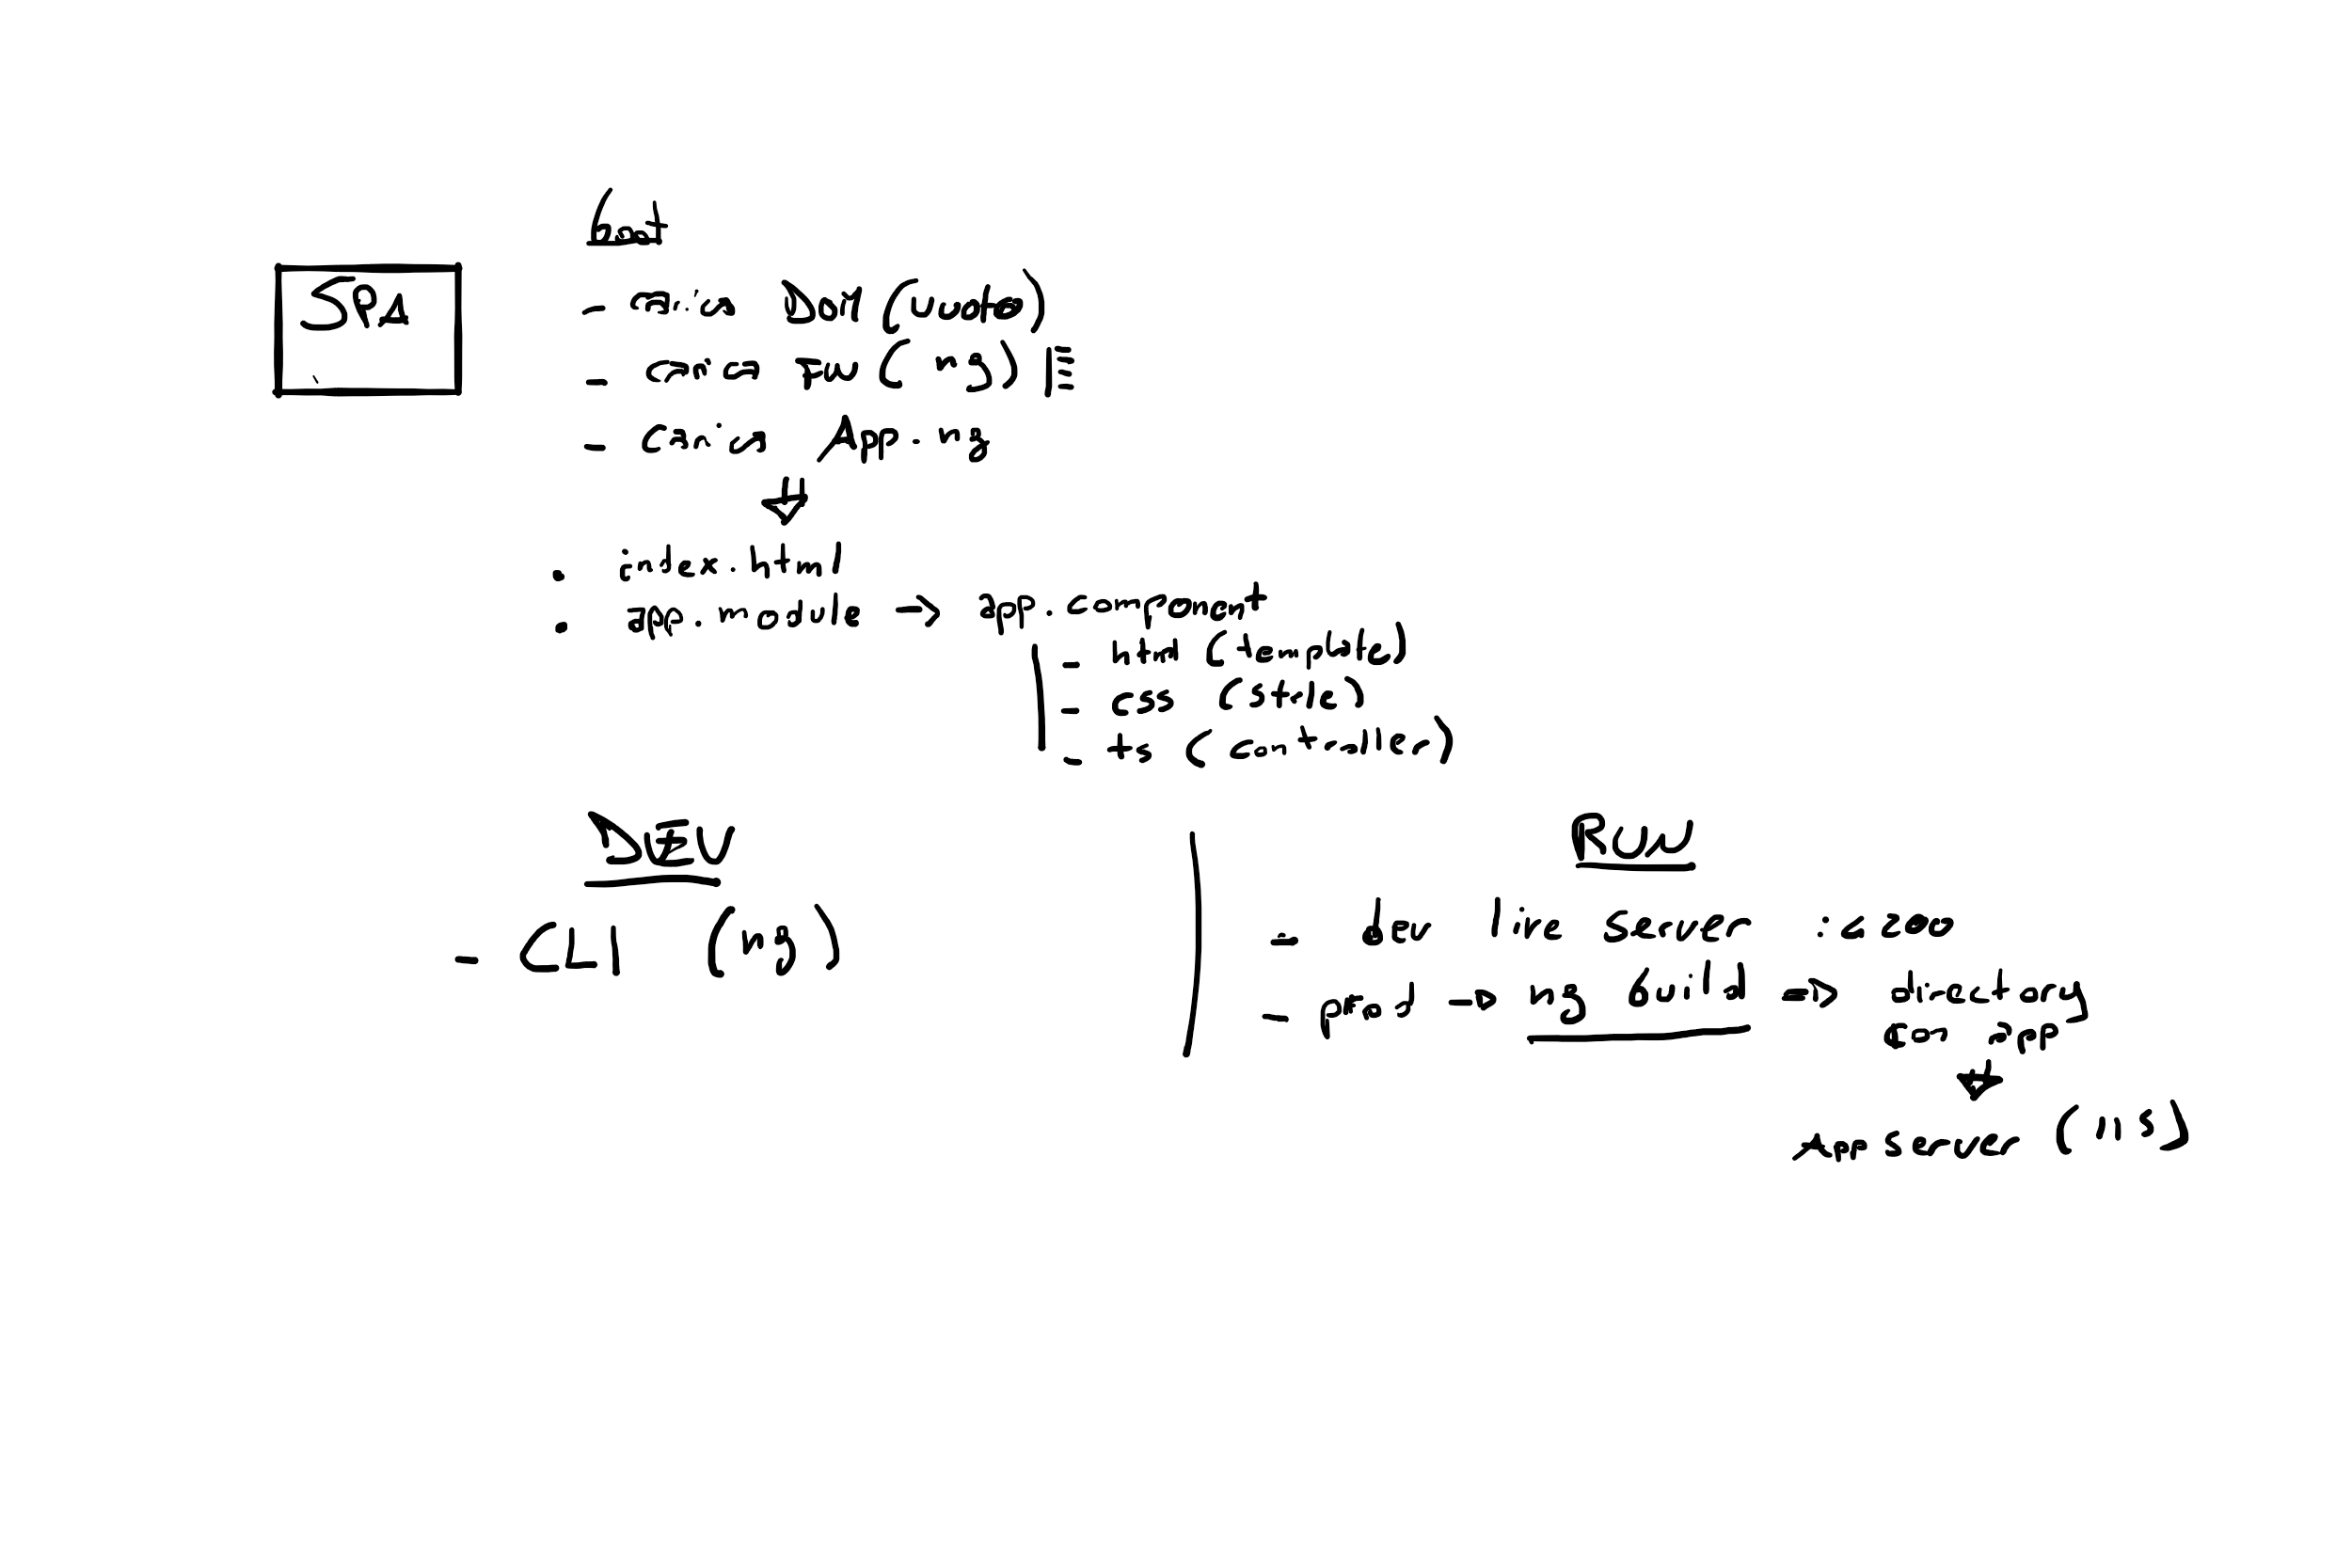 SPA
boot
- carica DOM (vuoto)
- carica FW (ng)
- carica App. ng
index.html
app.module → app.component
- html (template)
- css (style)
- ts (controller)
DEV
- CLI (ng)
RUN
- dev live server : 4200
- prod → ng build ⇒ directory
con app
App server (IIS)